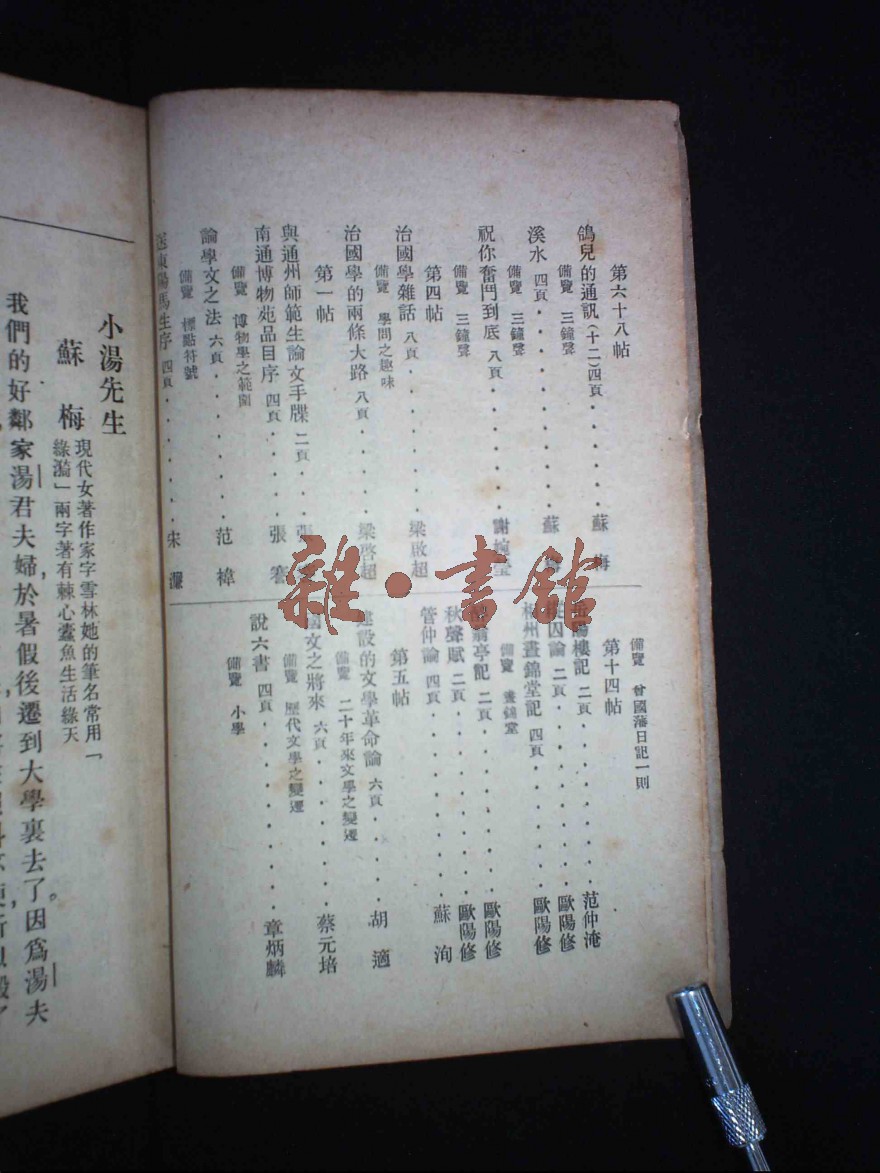 第六十八帖
鴿兒的通訊(十二)四頁......蘇 梅
備覽 三鐘聲
溪水 四頁......蘇
備覽 三鐘聲
祝你奮鬥到底 八頁......謝婉瑩
備覽 三鐘聲
第四帖
治國學雜話 八頁......梁啟超
備覽 學問之趣味
治國學的兩條大路 八頁......梁啓超
第一帖
與通州師範生論文手牒 二頁......張
南通博物苑品目序 四頁......張 謇
備覽 博物學之範圍
論學文之法 六頁......范 褘
備覽 標點符號
送東陽馬生序 四頁......宋 濂
備覽 曾國藩日記一則
第十四帖
陽樓記 二頁......范仲淹
囚論 二頁......歐陽修
州晝錦堂記 四頁......歐陽修
備覽 晝錦堂
翁亭記 二頁......歐陽修
秋聲賦 二頁......歐陽修
管仲論 四頁......蘇 洵
第五帖
建設的文學革命論 六頁......胡 適
備覽 二十年來文學之變遷
國文之將來 六頁......蔡元培
備覽 歷代文學之變遷
說六書 四頁......章炳麟
備覽 小學
雜·書館
小湯先生
蘇 梅
現代女著作家字雪林她的筆名常用「
綠漪」兩字著有棘心蠹魚生活綠天
我們的好鄰家湯君夫婦於暑假後遷到大學裏去了因爲湯夫